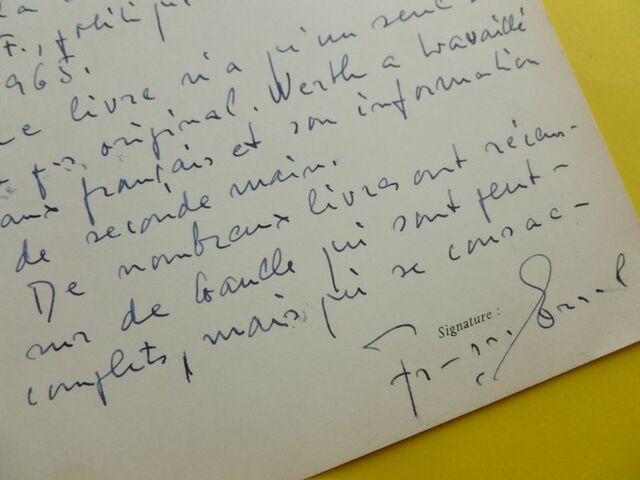 la
F., politique
1965.
livre n'a qu'un seul
original. Werth a travaillé
aux français et son information
de seconde main.
De nombreux livres ont récem-
sur de Gaulle qui sont peut-
complets, mais qui se consac-
Signature :